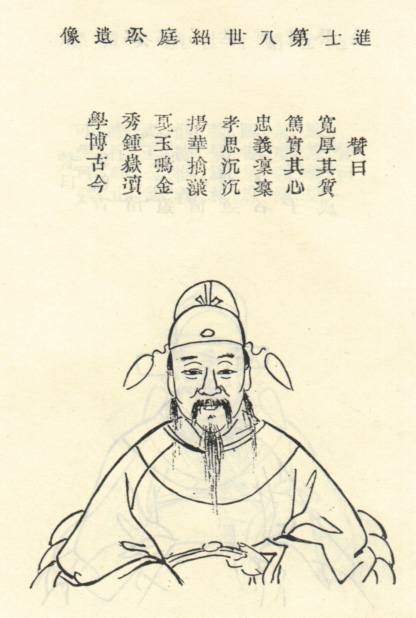 進士第八世紹庭公遺像
贊曰
寬厚其質
篤實其心
忠義凜凜
孝思沉沉
揚華摛藻
戛玉鳴金
秀鍾嶽瀆
學博古今